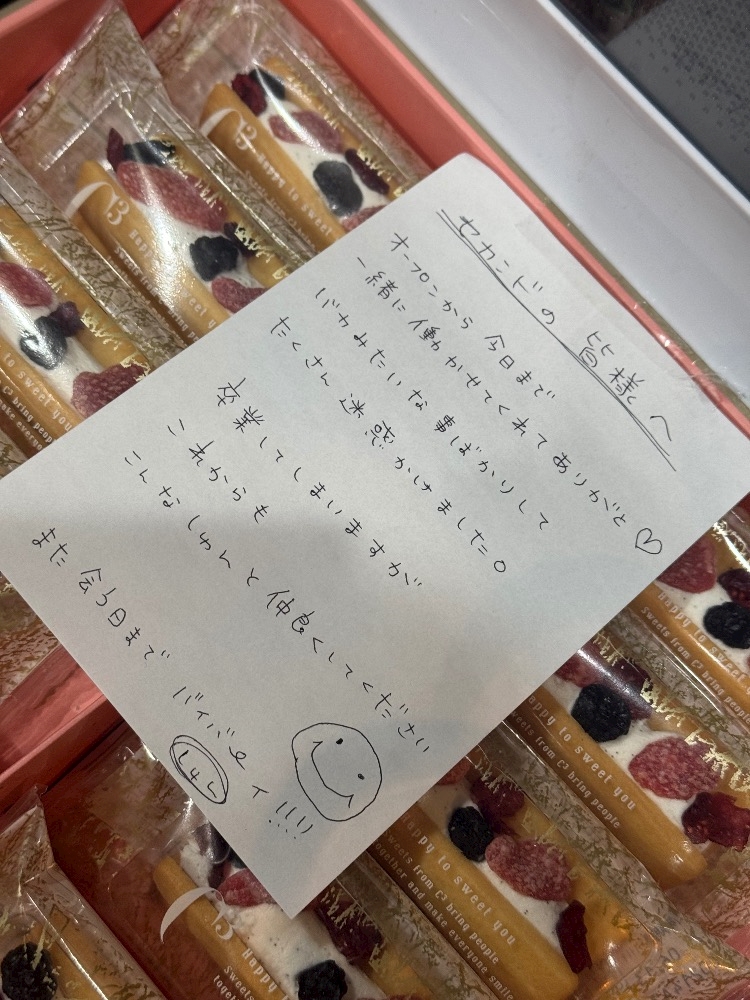 セカンドの 皆様へ
オープンから 今日まで
一緒に 働かせてくれてありがと♡
バカみたいな事ばかりして
たくさん 迷惑かけました。
卒業してしまいますが
これからも
こんなしゅんと 仲良くしてください
また 会う日まで バイバイ!!!!
C3
Happy to sweet you
C3
Happy
to sweet you
Happy to sweet you
Sweets from C3 bring people
Happy to sweet you
Sweets from C3 bring people
Happy to sweet you
Sweets from C3 bring people
together and make everyone smile
C3
Happy
Sweets